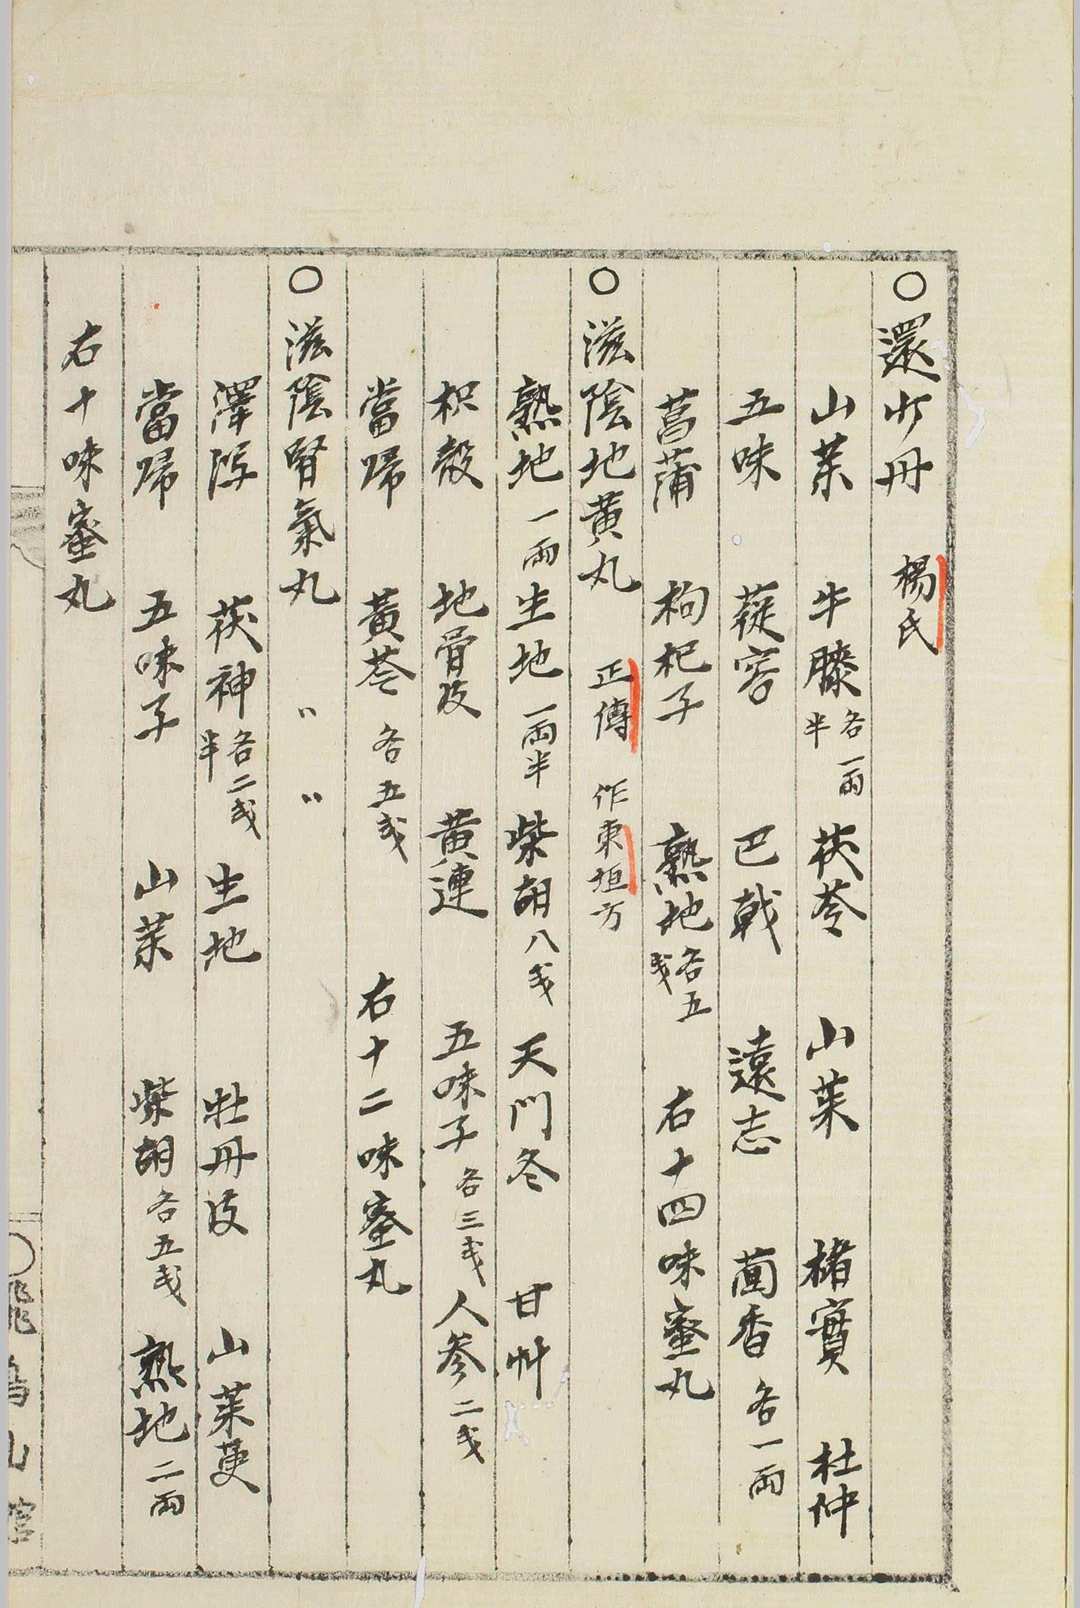 ○還少丹　楊氏
山茱　牛膝各一両半　茯苓　山茱　楮實　杜仲
五味　蓯容　巴戟　遠志　茴香各一両
菖蒲　枸杞子　熟地各五戔　右十四味蜜丸
○滋陰地黄丸　正傳　作東垣方
熟地一両　生地一両半　柴胡八戔　天門冬　甘艸
枳殼　地骨皮　黄連　五味子各三戔　人参二戔
當歸　黄芩各五戔　右十二味蜜丸
○滋陰腎氣丸　〃　〃
澤泻　茯神各二戔半　生地　牡丹皮　山茱萸
當歸　五味子　山茱　柴胡各五戔　熟地二両
右十味蜜丸